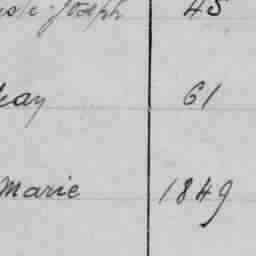 Joseph 45
61
Marie 1849